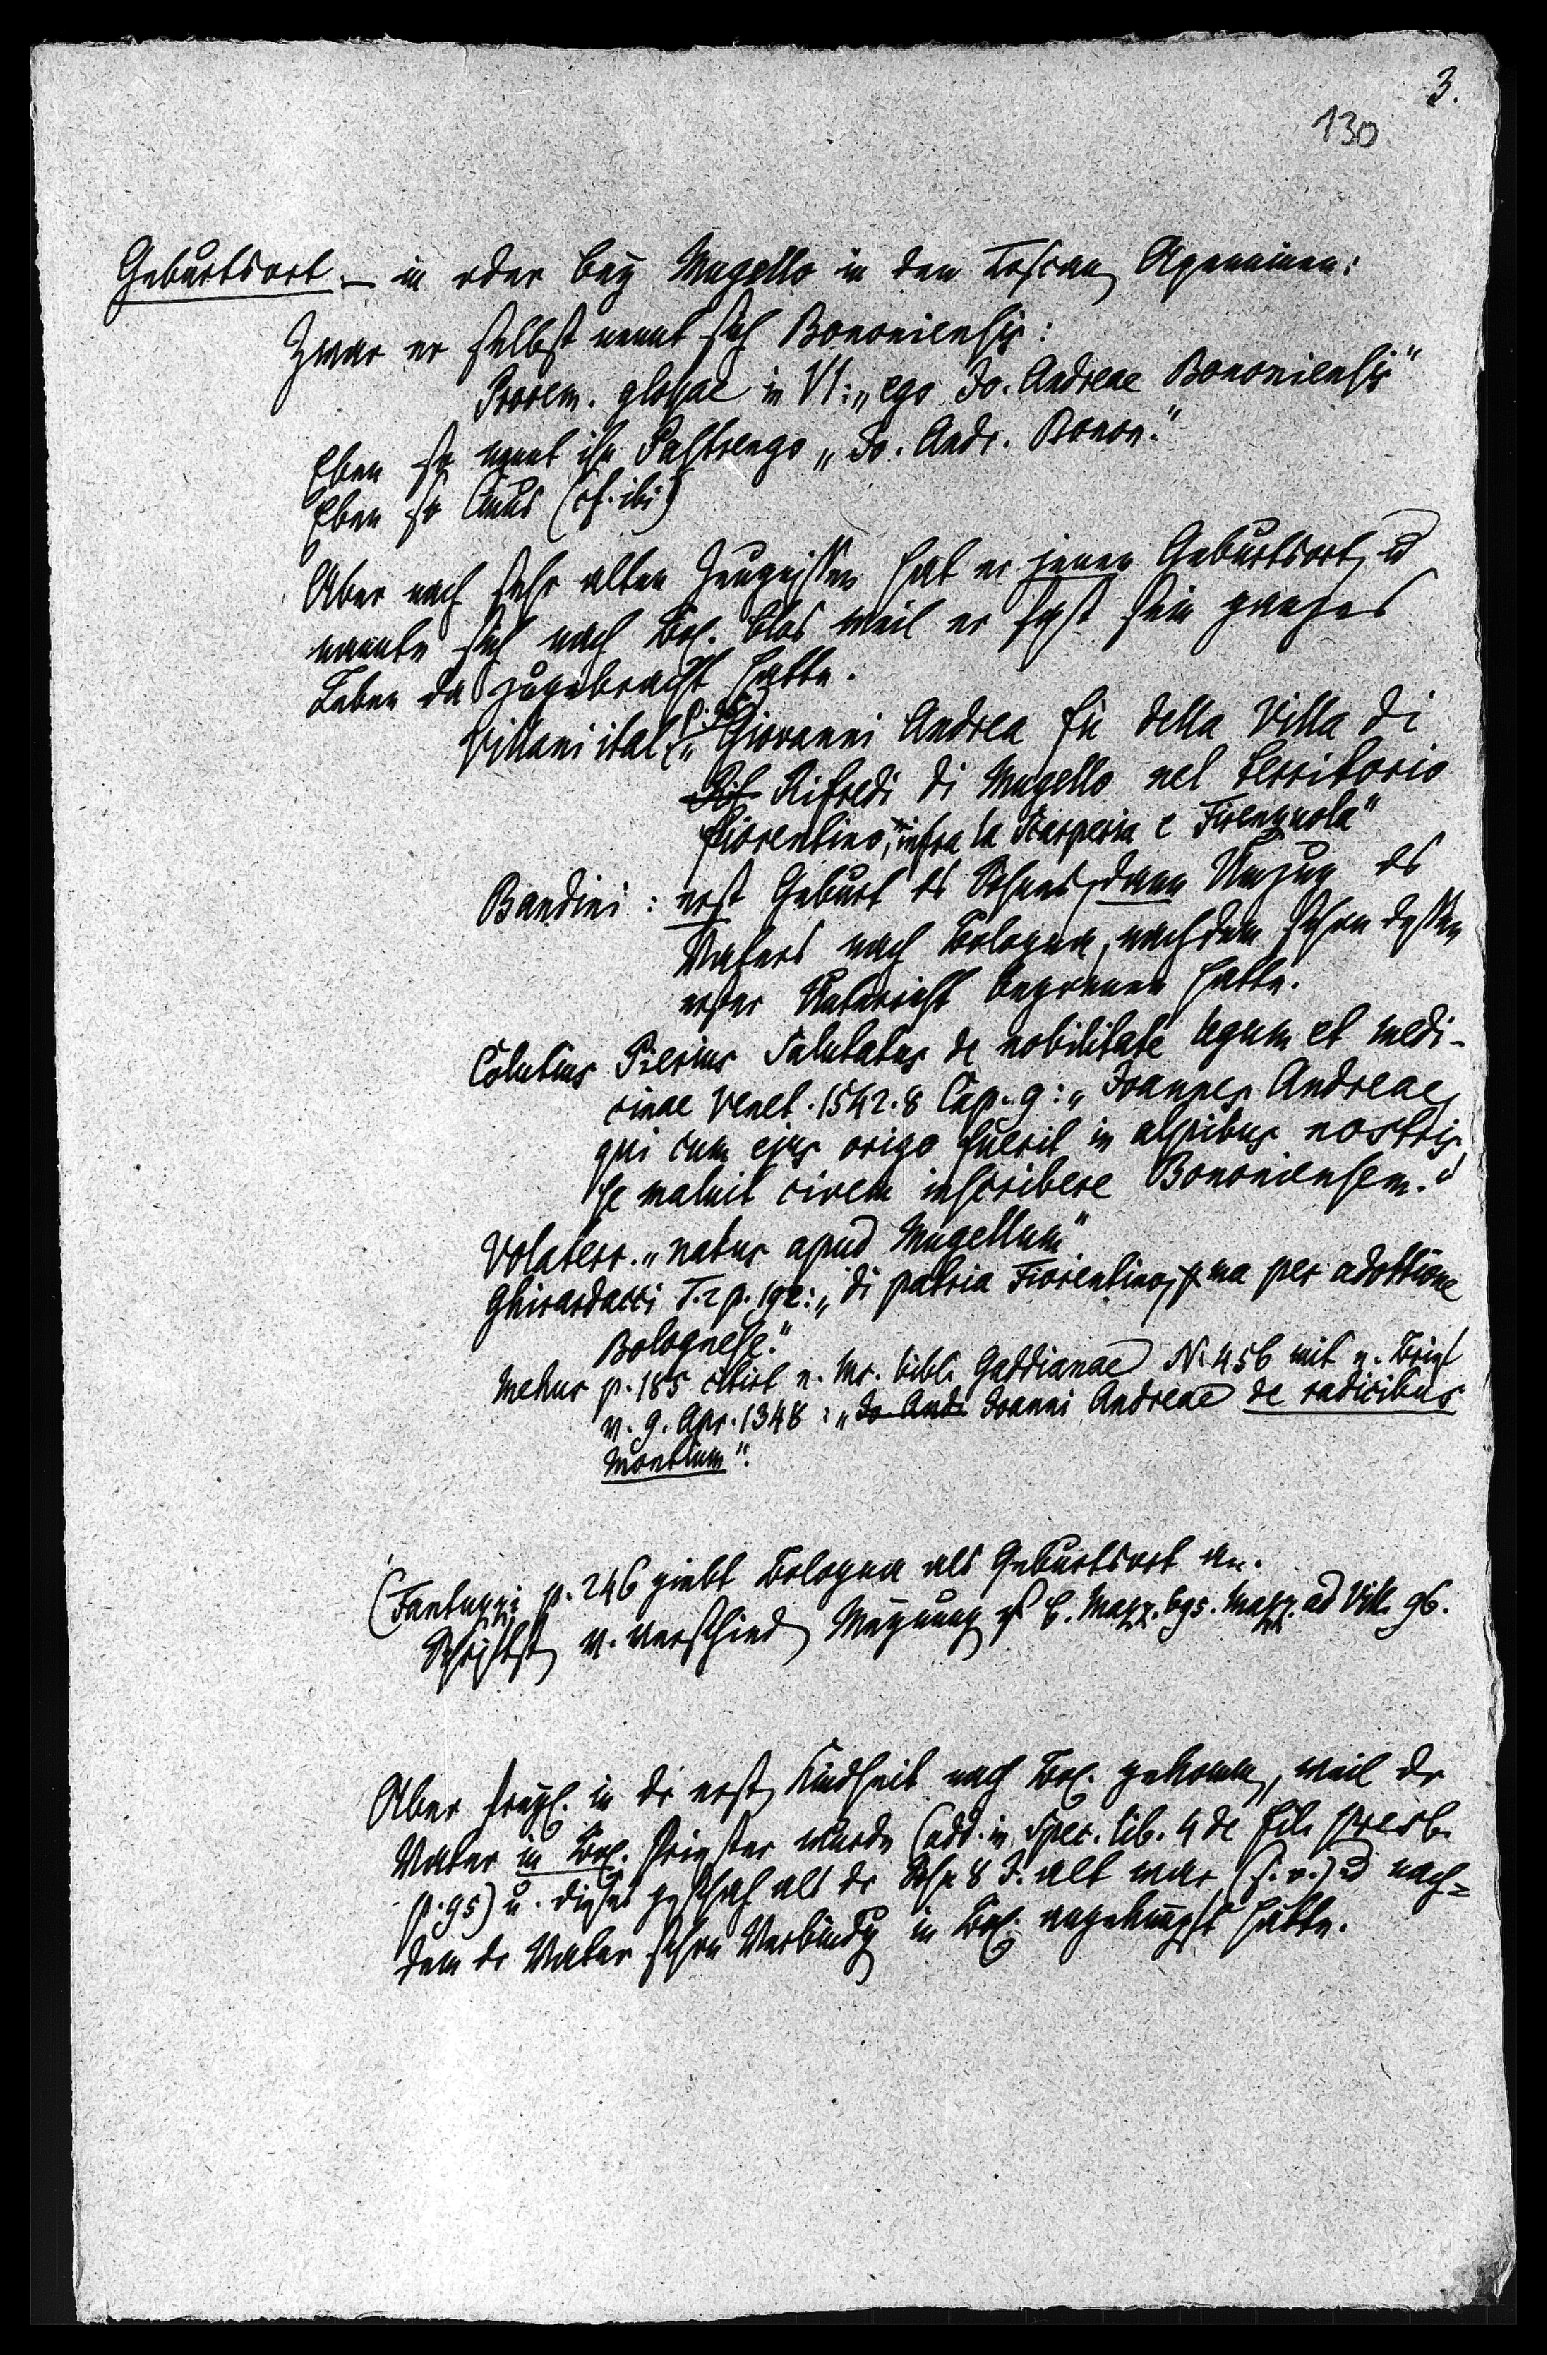 3.
130
Geburtsort – in oder bey Mugello in den Toscan Apenninen:
Zwar er selbst nennt sich Bononiensis:
Prooem. glossae in VI: „ego Jo. Andreae Bononiensis"
Eben so nennt ihn Pastrengo „Jo. Andr. Bonon."
Eben so Cinus (cf. ibi)
Aber nach sehr alten Zeugnissen hat er jenen Geburtsort, u
nannte sich nach Bol. blos weil er fast sein ganzes
Leben da zugebracht hatte.
Villani ital. p. „Giovanni Andrea fu della Villa di
Rif Rifredi di Mugello nel territorio
fiorentino, infra la Scarperia e Firenzuola"
Bandini: erst Geburt des Sohnes, dann Umzug des
Vaters nach Bologna, nachdem schon dessen
erster Unterricht begonnen hatte.
Colutius Pierius Salutatus de nobilitate legum et medi-
cinae Venet. 1542. 8 Cap. 9: „Joannes Andreae,
qui cum ejus origo fuerit in alpibus nostris,
se maluit civem inscribere Bononiensem."
Volaterr. „natus apud Mugellum"
Ghirardacci T. 2 p. 192: „di patria Fiorentino, ma per adottione
Bolognese."
Mehus p. 185 citirt e. Ms. bibl. Gaddianae N. 456 mit e. Brief
v. 9. Apr. 1348: „Jo Andr Joanni Andreae de radicibus
montium".
(Fantuzzi p. 246 giebt Bologna als Geburtsort an.
Schriftst v. verschied Meynung cf b. Mazz. bgs. Mazz. ad Vill. 96.
Aber freyl. in dr erst Kindheit nach Bol. gekomm, weil dr
Vater in Bol. Priester wurde (add. in Spec. lib. 4 de fil. presb.
p. 95) u. dieses geschah als dr Sohn 8 J. alt war (s. o.) u nach=
dem dr Vater schon Verbindg in Bol. angeknüpft hatte.